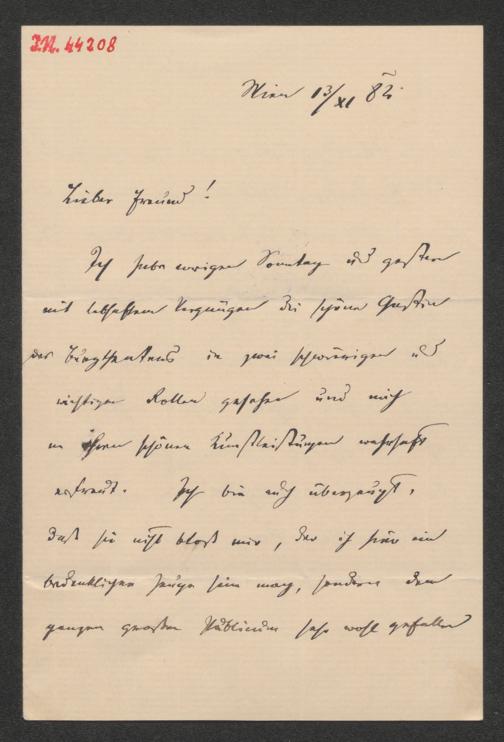 I.N. 44208
Wien 13/XI 82
Lieber Freund!
Ich habe vorigen Sonntag und gestern
mit lebhaftem Vergnügen die schöne Gastin
des Burgtheaters in zwei schwierigen und
wichtigen Rollen gesehen und mich
an ihren schönen Kunstleistungen wahrhaft
erfreut. Ich bin auch überzeugt,
daß sie nicht bloß mir, der ich hier ein
bedenklicher Zeuge sein mag, sondern dem
ganzen großen Publicum sehr wohl gefallen